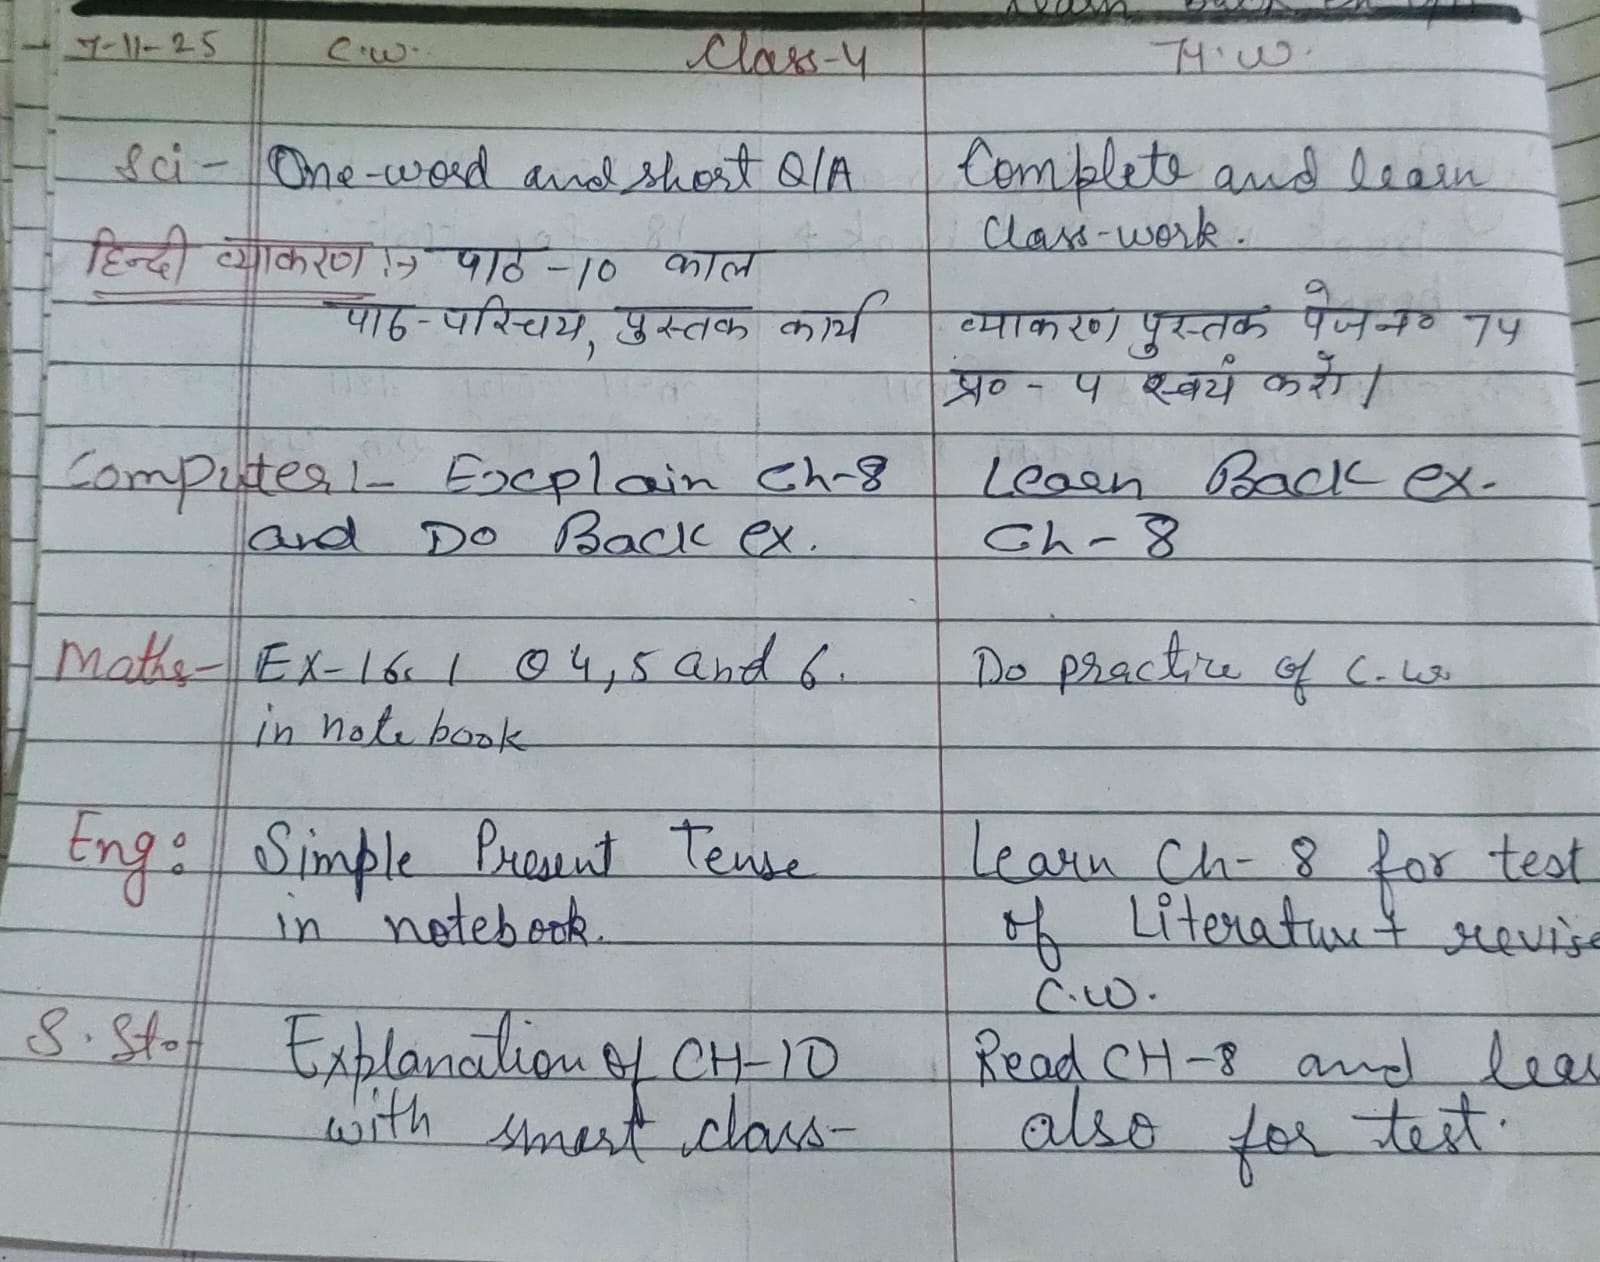 7-11-25 C.W. Class-4 H.W.
Sci- One-word and short Q/A Complete and learn
Class-work.
हिन्दी व्याकरण :-> पाठ -10 काल
पाठ-परिचय, पुस्तक कार्य व्याकरण पुस्तक पेज न० 74
प्र० - 4 स्वयं करो।
Computer:- Explain Ch-8 Learn Back ex.
and Do Back ex. Ch-8
Maths- EX-16.1 Q 4,5 and 6. Do practice of C.W.
in note book
Eng: Simple Present Tense Learn Ch-8 for test
in notebook. of Literature + revise
C.W.
S.St. Explanation of CH-10 Read CH-8 and
with smart class- also for test.